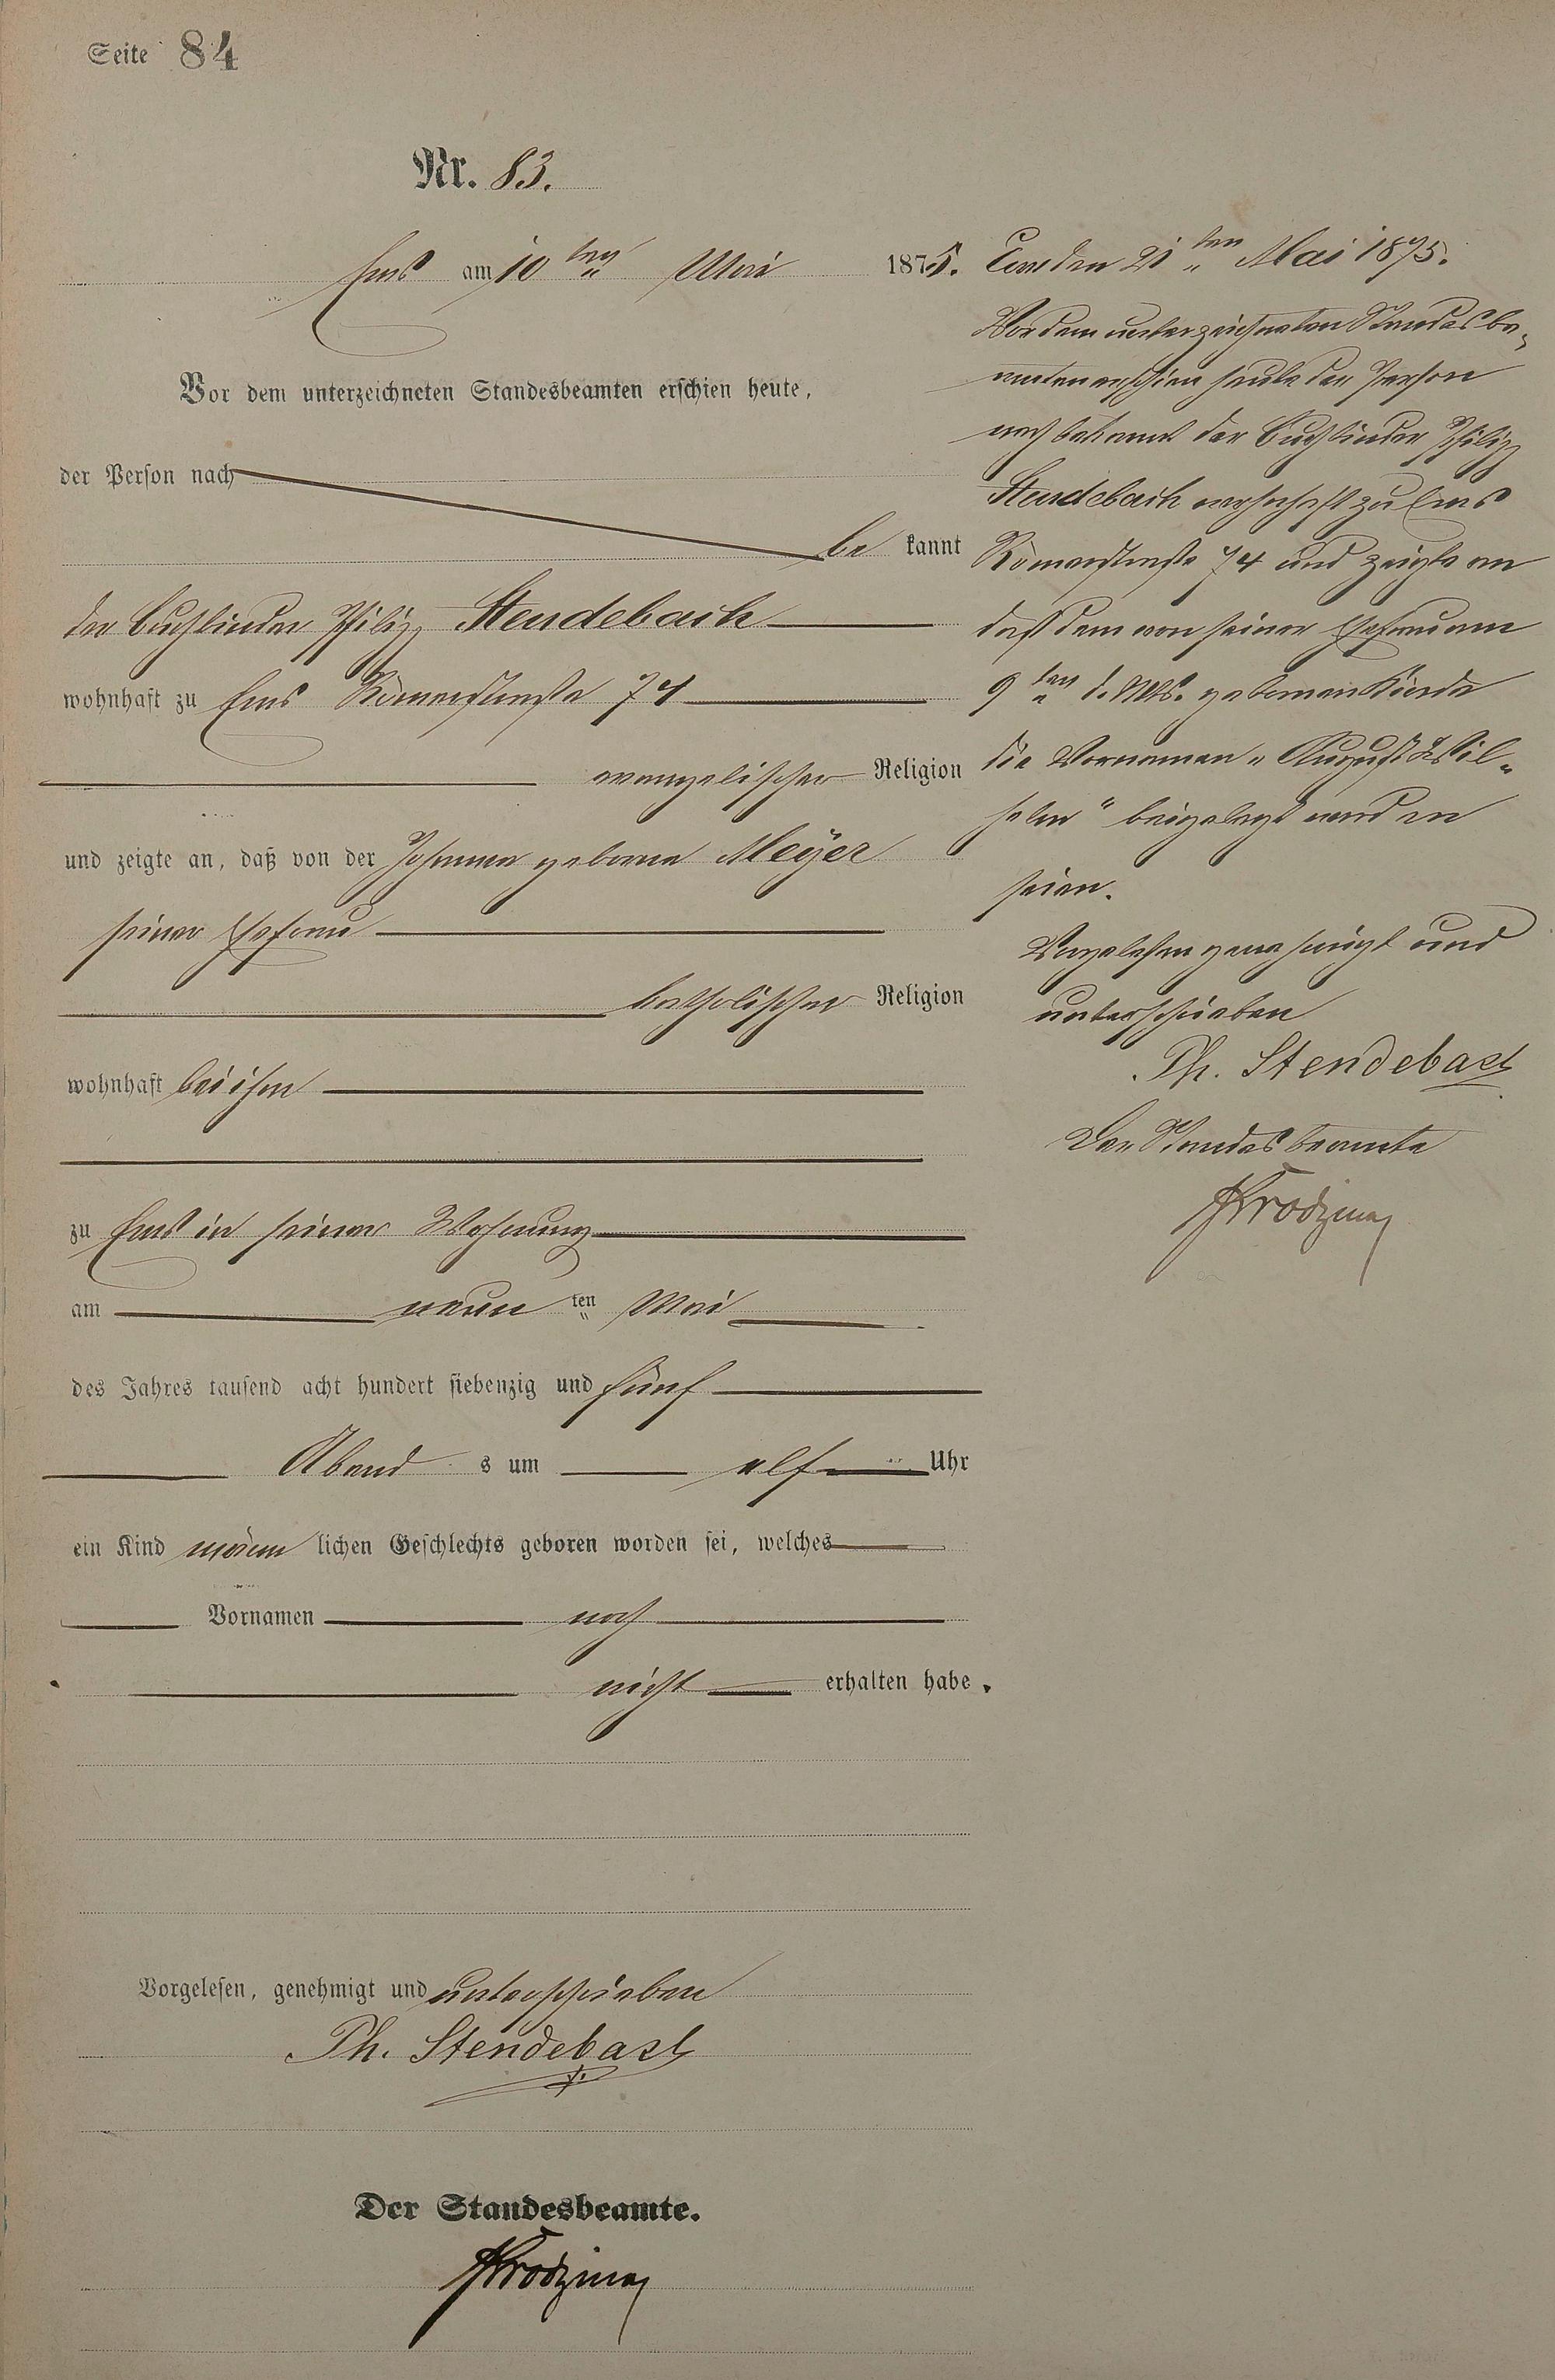 Seite 84
Nr. 83.
Ems am 10ten Mai 1875.
Vor dem unterzeichneten Standesbeamten erschien heute,
der Person nach
be kannt
der Buchbinder Philipp Stendebach
wohnhaft zu Ems Römerstraße 74
evangelischer Religion
und zeigte an, daß von der Johanna geborne Meÿer
seiner Ehefrau
katholischer Religion
wohnhaft bei ihm
zu Ems in seiner Wohnung
am neun ten Mai
des Jahres tausend acht hundert siebenzig und fünf
Abend s um elf Uhr
ein Kind männ lichen Geschlechts geboren worden sei, welches
Vornamen noch
nicht erhalten habe.
Vorgelesen, genehmigt und unterschrieben
Ph. Stendebach
Der Standesbeamte.
Ems den 21ten Mai 1875.
Vor dem unterzeichneten Standesbe-
amten erschien heute der Person
nach bekannt der Buchbinder Philipp
Stendebach wohnhaft zu Ems
Römerstraße 74 und zeigte an
daß dem von seiner Ehefrau am
9ten d. Mts. gebornen Kinde
die Vornamen „August Wil-
helm" beigelegt worden
seien.
Vorgelesen genehmigt und
unterschrieben
Ph. Stendebach
Der Standesbeamte